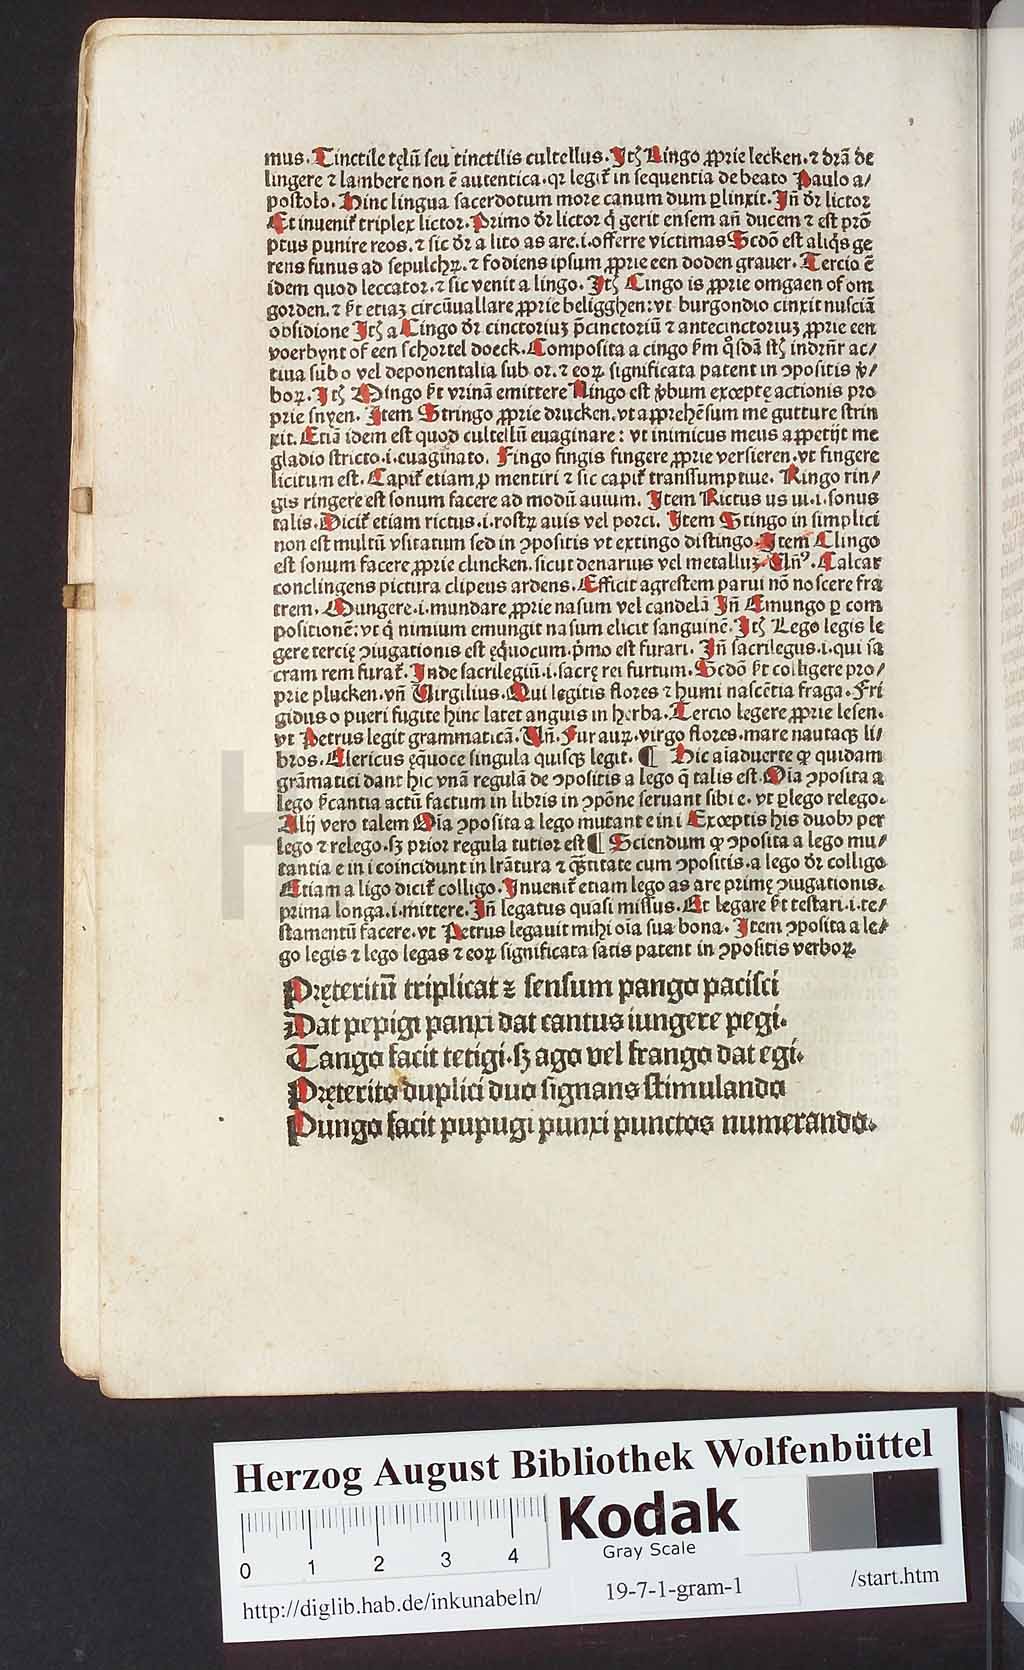 mus. Tinctile tęlū seu tinctilis cultellus. Itꝫ Lingo ꝓprie lecken. ⁊ dr̄ā de
lingere ⁊ lambere non ē autentica. qꝛ legit᷑ in sequentia de beato Paulo a/
postolo. Hinc lingua sacerdotum more canum dum ꝑlinxit. Iñ dr̄ lictor
Et inuenit᷑ triplex lictor. Primo dr̄ lictor q̇ gerit ensem añ ducem ⁊ est prō
ptus punire reos. ⁊ sic dr̄ a lito as are .i. offerre victimas Scdō est aliq̇s ge
rens funus ad sepulchꝝ. ⁊ fodiens ipsum ꝓprie een doden grauer. Tercio ē
idem quod leccator. ⁊ sic venit a lingo. Itꝫ Cingo is ꝓprie omgaen of om
gorden. ⁊ s̄t etiaꝫ circūuallare ꝓprie beligghen: vt burgondio cinxit nusciā
obsidione Itꝫ a Cingo dr̄ cinctoriuꝫ p̄cinctoriū ⁊ antecinctoriuꝫ ꝓprie een
voerbynt of een schortel doeck. Composita a cingo s̄m q̊sdā stꝫ indrn̄r ac/
tiua sub o vel deponentalia sub or. ⁊ eoꝝ significata patent in ↄpositis ꝟ/
boꝝ. Itꝫ Mingo s̄t vrinā emittere Ningo est ꝟbum exceptę actionis pro
prie snyen. Item Stringo ꝓprie drucken. vt apprehēsum me gutture strin
xit. Etiā idem est quod cultellū euaginare: vt inimicus meus appetijt me
gladio stricto .i. euaginato. Fingo fingis fingere ꝓprie versieren. vt fingere
licitum est. Capit᷑ etiam ꝓ mentiri ⁊ sic capit᷑ transsumptiue. Ringo rin/
gis ringere est sonum facere ad modū auium. Item Rictus us ui .i. sonus
talis. Dicit᷑ etiam rictus .i. rostꝝ auis vel porci. Item Stingo in simplici
non est multū vsitatum sed in ↄpositis vt extingo distingo. Item Clingo
est sonum facere ꝓprie clincken. sicut denarius vel metalluꝫ. Vn̄ꝰ. Calcar
conclingens pictura clipeus ardens. Efficit agrestem parui nō noscere fra
trem. Mungere .i. mundare ꝓprie nasum vel candelā Iñ Emungo ꝑ com
positionē: vt q̇ nimium emungit nasum elicit sanguinē. Itꝫ Lego legis le
gere tercię ↄiugationis est ęq̇uocum. p̄mo est furari. Iñ sacrilegus .i. qui sa
cram rem furat᷑. Inde sacrilegiū .i. sacrę rei furtum. Scdō s̄t colligere pro/
prie plucken. vñ Virgilius. Qui legitis flores ⁊ humi nascētia fraga. Fri
gidus o pueri fugite hinc latet anguis in herba. Tercio legere ꝓprie lesen.
vt Petrus legit grammaticā. Vñ. Fur auꝝ. virgo flores. mare nautaqꝫ li/
bros. Clericus ęq̇uoce singula quisqꝫ legit. ¶ Hic aīaduerte ꝙ quidam
grāmatici dant hic vnā regulā de ↄpositis a lego q̄ talis est. Oīa ↄposita a
lego s̄cantia actū factum in libris in ↄpōne seruant sibi e. vt ꝑlego relego.
Alij vero talem Oīa ↄposita a lego mutant e in i Exceptis his duobꝰ per
lego ⁊ relego. sꝫ prior regula tutior est ¶ Sciendum ꝙ ↄposita a lego mu/
tantia e in i coincidunt in lrātura ⁊ q̄stitate cum ↄpositis. a lego dr̄ colligo
Etiam a ligo dicit᷑ colligo. Inuenit᷑ etiam lego as are primę ↄiugationis.
prima longa .i. mittere. Iñ legatus quasi missus. Et legare s̄t testari .i. te/
stamentū facere. vt Petrus legauit mihi oīa sua bona. Item ↄposita a le/
go legis ⁊ lego legas ⁊ eoꝝ significata satis patent in ↄpositis verboꝝ.
Pręteritū triplicat ⁊ sensum pango pacisci
Dat pepigi panxi dat cantus iungere pegi.
Tango facit tetigi. sꝫ ago vel frango dat egi.
Pręterito duplici duo signans stimulando
Pungo facit pupugi punxi punctos numerando.
Herzog August Bibliothek Wolfenbüttel
0 1 2 3 4
Kodak
Gray Scale
http://diglib.hab.de/inkunabeln/ 19-7-1-gram-1 /start.htm